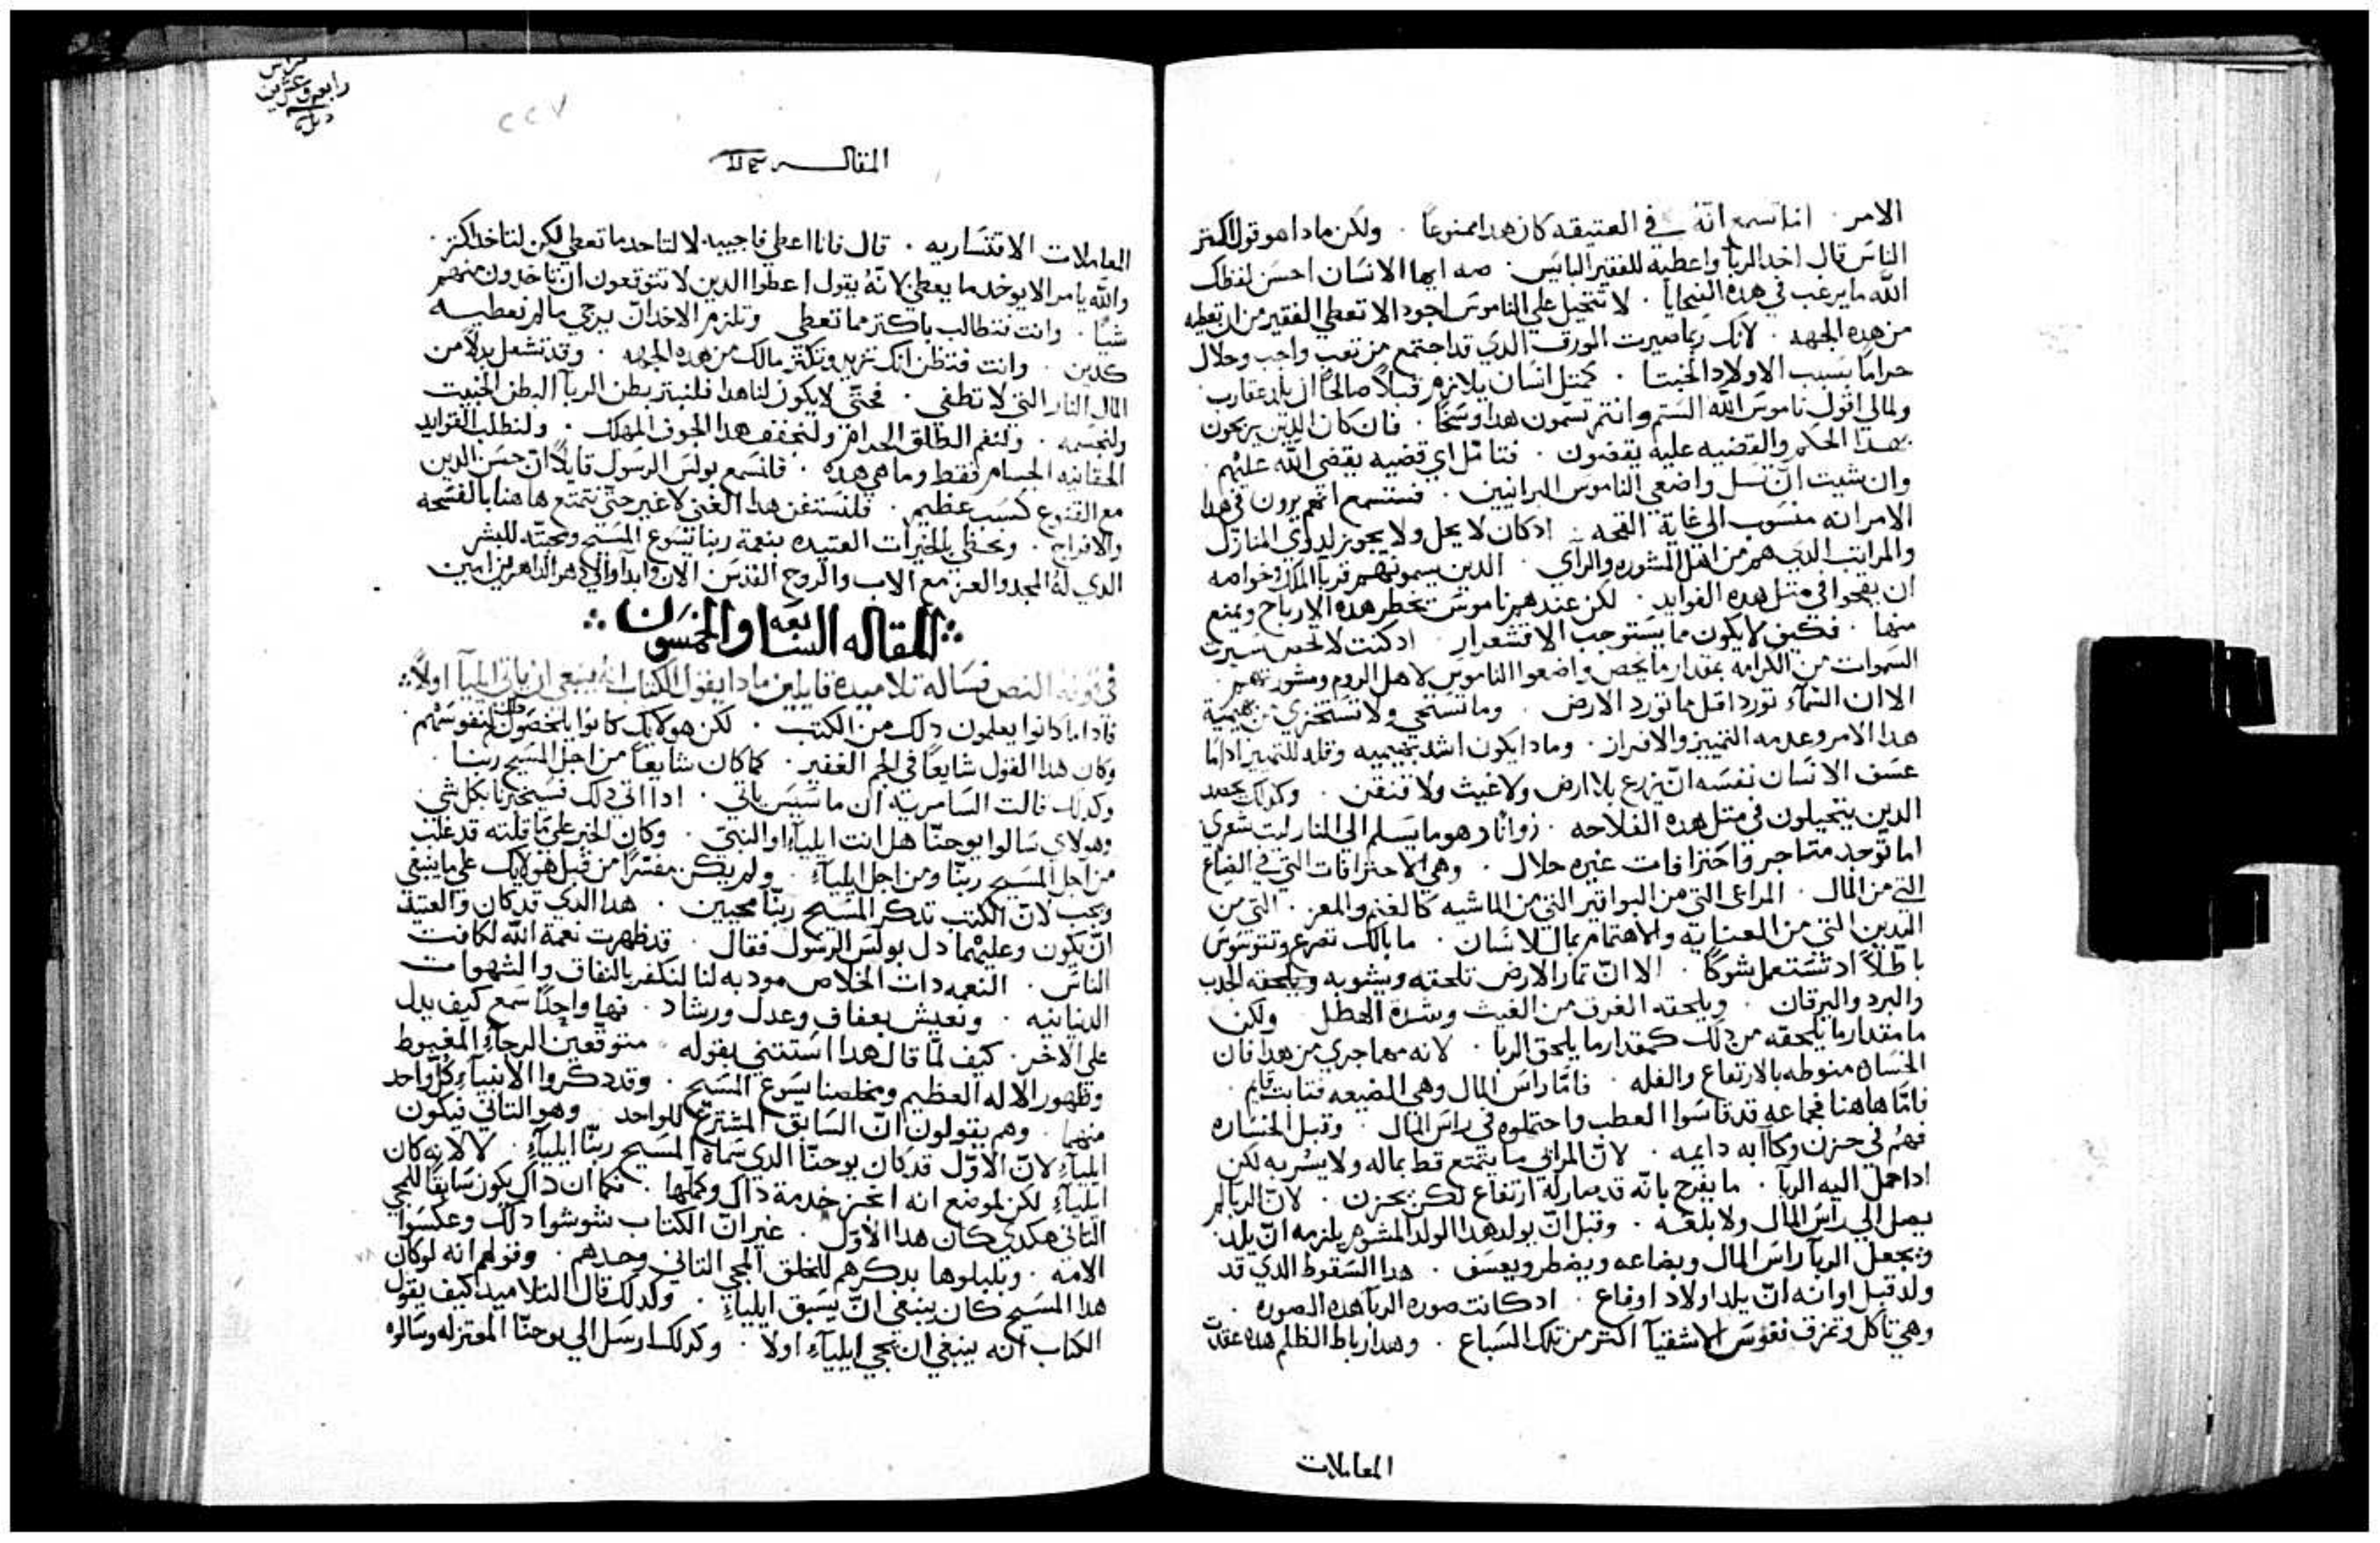 الامر . انا نسمع انّهُ في العتيقه كان هدا ممنوعاً . ولكن مادا هو قول اكتر
الناس قال اخد الربا واعطيه للفقير البايس . صه ايها الانسان احسن لفظك
الله ما يرغب في هده الضحايا . لا تتحيل على الناموس اجود الا تعطي الفقير من ان تعطيه
من هده الجهه . لانك ربما صيرت الورق الدي قد اجتمع من تعب واجب وحلال
حراماً بسبب الاولاد الخبتا . كمتل انسان يلازم قبلاً صالحاً ان يلد عقارب
ولمالي اقول ناموس الله الستم وانتم تسمون هدا وسخاً . فان كان الدين يربحون
بهدا الحكم والقضيه عليه يقضون . فتامّل اي قضيه يقضي الله عليهم
وان شيت ان تسل واضعي الناموس البرانيين . فستسمع انهم يرون في هدا
الامر انه منسوب الى غاية القحه . ادكان لا يحل ولا يجوز لدوي المنازل
والمراتب الدي هم من اهل المشوره والراي . الدين يسمونهم قربآ الملك وخواصه
ان يقحوا في متل هده الفوايد . لكن عندهم ناموس يحظر هده الارباح ويمنع
منها . فكيف لا يكون مما يستوجب الاقشعرار . ادكنت لا تخص سيرت
السموات من الكرامه بمقدار ما يخص واضعوا الناموس لاهل الروم ومشورتهم .
الا ان السماء تورد اقل مما تورد الارض . وما تستحي ولا تستخزي من بهيمية
هدا الامر وعدمه التمييز والافراز . ومادا يكون اشد بهيميه وقله للتمييز اداما
عسف الانسان نفسه ان يزرع بلا ارض ولا غيت ولا فنقن . وكدلك يحصد
الدين يتحيلون في متل هده الفلاحه . زواناً وهو ما يسلم الى النار ليت شعري
اما توجد متاجر واحترافات غيره حلال . وهي الاحترافات التي في الضياع
التي من المال . المراعي التي من البواقير التي من الماشيه كالغنم والمعز . التي من
اليدين التي من العنايه والاهتمام بمال الانسان . ما بالك تصرع وتتوسوس
باطلاً ادتستعمل شوكاً . الا انّ تمار الارض تلحقه ويشوبه ويلحقه الجدب
والبرد واليرقان . ويلحقه الغرق من الغيت وشدة الهطل . ولكن
ما مقدار ما يلحقه من دلك كمقدار ما يلحق الربا . لانه مهما جري من هدا فان
الخسران منوطه بالارتفاع والغله . فامّا راس المال وهي الضيعه فتابت قايم .
فامّا هاهنا فجماعه قد قاسوا العطب واحتملوه في راس المال . وقبل الخساره
فهم في حزن وكاآبه دايمه . لانّ المرابي ما يتمتع قط بماله ولا يسر به لكن
اداحمل اليه الربآ . ما يفرح بانّه قد صار له ارتفاع لكن يحزن . لانّ الربا لم
يصل الى راس المال ولا بلغه . وقبل انّ يولد هدا الولد المشوم يلزمه انّ يلد
ويجعل الربآ راس المال وبضاعه ويضطر ويعسف . هدا السقوط الدي قد
ولد قبل اوانه انّ يلد اولاد اوفاع . ادكانت صورة الربآ هده الصوره .
وهي تاكل وتمزق نفوس الاشقيآ اكتر من تلك السباع . وهدا رباط الظلم هده عقدات
المعاملات
رابع وعشرين
٢٢٧
المقالـــه
المعاملات الاقتساريه . قال فانا اعطي فاجيبه لا لتاخد ما تعطي لكن لتاخد اكتر .
والله يامر الا يوخد ما يعطي لانّهُ يقول اعطوا الدين لا تتوقعون ان تاخدون منهم
شياً . وانت تتطالب باكتر مما تعطي وتلزم الاخد انّ يرجي ما لم تعطيــه
كدين . وانت فتظن انك تزيد وتكتر مالك من هده الجهه . وقد تشعل بدلاً من
المال النار التي لا تطفي . فحتّي لا يكون لنا هدا فلنبتر بطن الربآ البطن الخبيت
ولنحسمه . ولنقم الطلق الحرام ولنجفف هدا الجوف المهلك . ولنطلب الفوايد
الحقانيه الجسام فقط وما هي هده . فانسمع بولس الرسول قايلاً انّ حسن الدين
مع القنوع كسب عظيم . فلنستغن هدا الغني لا غير حتّي نتمتع هاهنا بالفسحه
والافراج . ونحظي بالخيرات العتيده بنعمة ربنا يسوع المسيح ومحبته للبشر
الدي لهُ المجد والعز مع الاب والروح القدس الان وابداً والى دهر الداهرين امين
المقاله السابعه والخمسون
في قوله النص فساله تلاميده قايلين مادا يقول الكتاب انه ينبغي ان ياتي ايليآ اولاً
فادا ما كانوا يعلمون دلك من الكتب . لكن هولايك كانوا يلخصون دلك لنفوسهم .
وكان هدا القول شايعاً في الجم الغفير . كما كان شايعاً من اجل المسيح ربنا .
وكدلك قالت السامريه ان ماسيس ياتي . ادا اتي داك فسيخبرنا بكل شي
وهولاي سالوا يوحنّا هل انت ايليآء او النبي . وكان الخبر على ما قلته قد غلب
من اجل المسيح ربنّا ومن اجل ايليآء . ولم يكن مفسراً من قبل هولايك على ما ينبغي
ويجب لانّ الكتب تدكر المسيح ربّنا مجيين . هدا الدي قد كان والعتيد
انّ يكون وعليهما دل بولس الرسول فقال . قد ظهرت نعمة الله لكافت
الناس . النعمه دات الخلاص مودبه لنا لنكفر بالنفاق والشهوات
الدنيانيه . ونعيش بعفاف وعدل ورشاد . فها واحداً سمع كيف يدل
على الاخر . كيف لمّا قال هدا استتني بقوله . متوقعين الرجآء المغبوط
وظهور الاله العظيم ومخلصنا يسوع المسيح . وقد دكروا الانبيآء كل واحد
منهما . وهم يقولون انّ السابق المشترع للواحد . وهو التاني فيكون
ايليآء لانّ الاوّل قد كان يوحنّا الدي سماه المسيح ربنّا ايليآء . لا لانه كان
ايليآء لكن لموضع انه انجز خدمة داك وكملها . فكما ان داك يكون سابقاً للمجي
التاني هكدي كان هدا الاوّل . غير انّ الكتاب شوشوا دلك وعكسوا
الامه . وبلبلوها بدكرهم للخلق المجي التاني وحدهم . وقولهم انه لوكان
هدا المسيح كان ينبغي انّ يسبق ايليآء . وكدلك قال التلاميد اكيف يقول
الكتاب انه ينبغي ان يجي ايليآء اولا . وكدلك ارسل الى يوحنّا المعتزله وسالوه